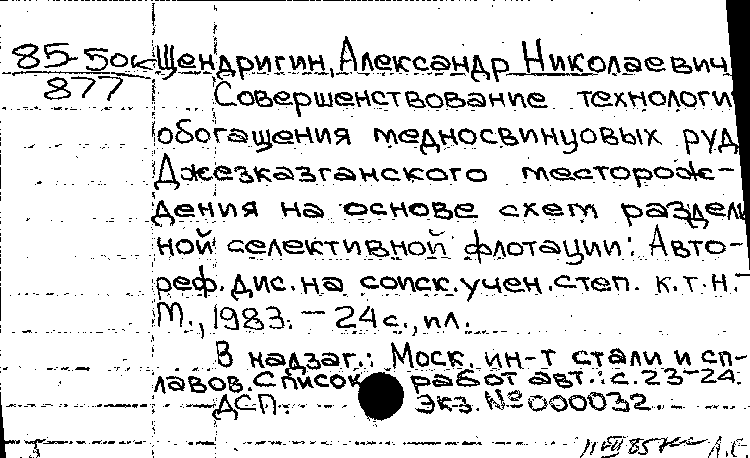 85-50к Щендригин, Александр Николаевич
877 Совершенствование технологи
обогащения медносвинцовых руд
Джезказганского месторож-
дения на основе схем раздел
ной селективной флотации: Авто-
реф. дис. на соиск. учен. степ. к.т.н. -
М., 1983. - 24 с., ил.
В надзаг.: Моск. ин-т стали и сп-
лавов. Список работ авт.: с. 23-24.
ДСП. Экз. № 000032.
А.С.